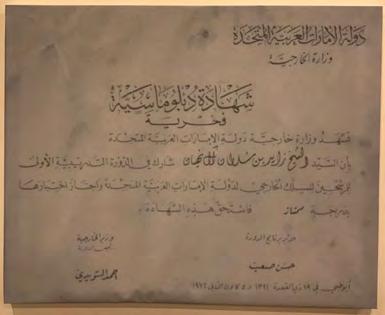 دولة الإمارات العربية المتحدة
وزارة الخارجية
شهادة دبلوماسية
فخرية
تشهد وزارة خارجية دولة الإمارات العربية المتحدة
بأن السيد الشيخ زايد بن سلطان آل نهيان شارك في الدورة التدريبية الأولى
للمرشحين للسلك الخارجي لدولة الإمارات العربية المتحدة واجتاز اختبارها
بدرجة ممتاز فاستحق هذه الشهادة.
مدير برنامج الدورة
وزير الخارجية
حسن صعب
أحمد السويدي
أبوظبي في ذي القعدة ١٣٩٢ كانون الأول ١٩٧٢